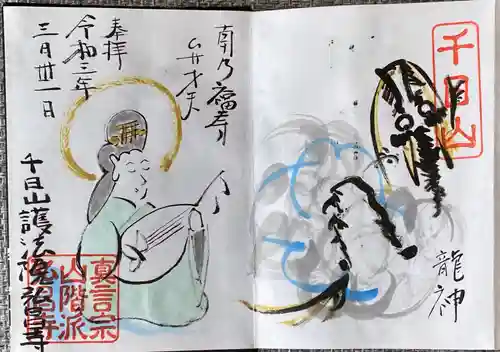 千日山
龍神
南乃福寿
弁才天
奉拝
令和三年
三月卅一日
千日山護法
真言宗
山階派